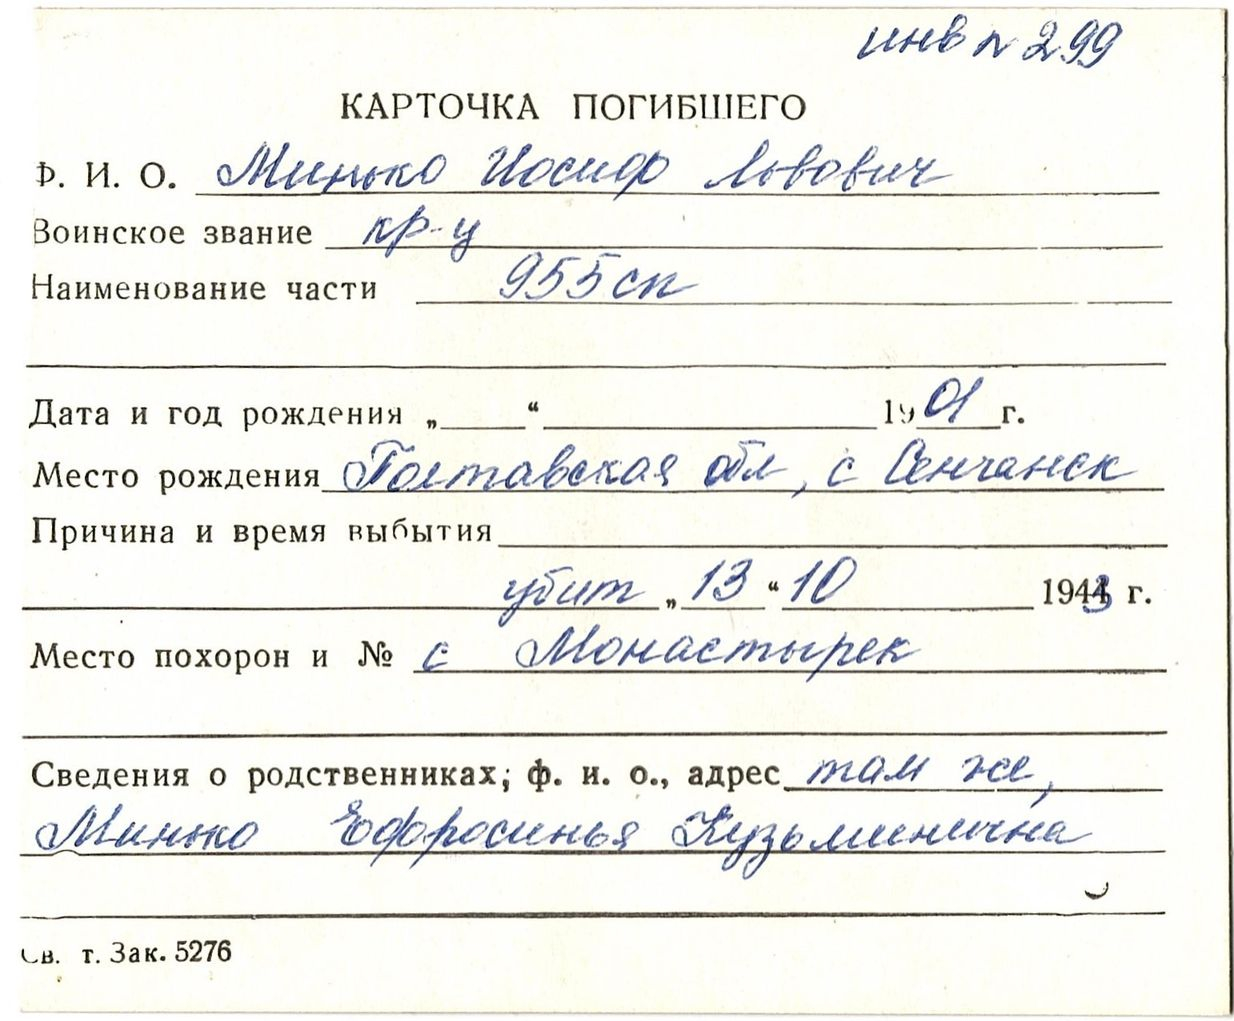 инв № 299
КАРТОЧКА ПОГИБШЕГО
Ф. И. О. Минько Иосиф Львович
Воинское звание кр-ц
Наименование части 955 сп
Дата и год рождения „ “ 1901 г.
Место рождения Полтавская обл, с Сенчанск
Причина и время выбытия
убит „13“ 10 1943 г.
Место похорон и № с Монастырек
Сведения о родственниках; ф. и. о., адрес там же,
Минько Ефросинья Кузьминична
Св. т. Зак. 5276